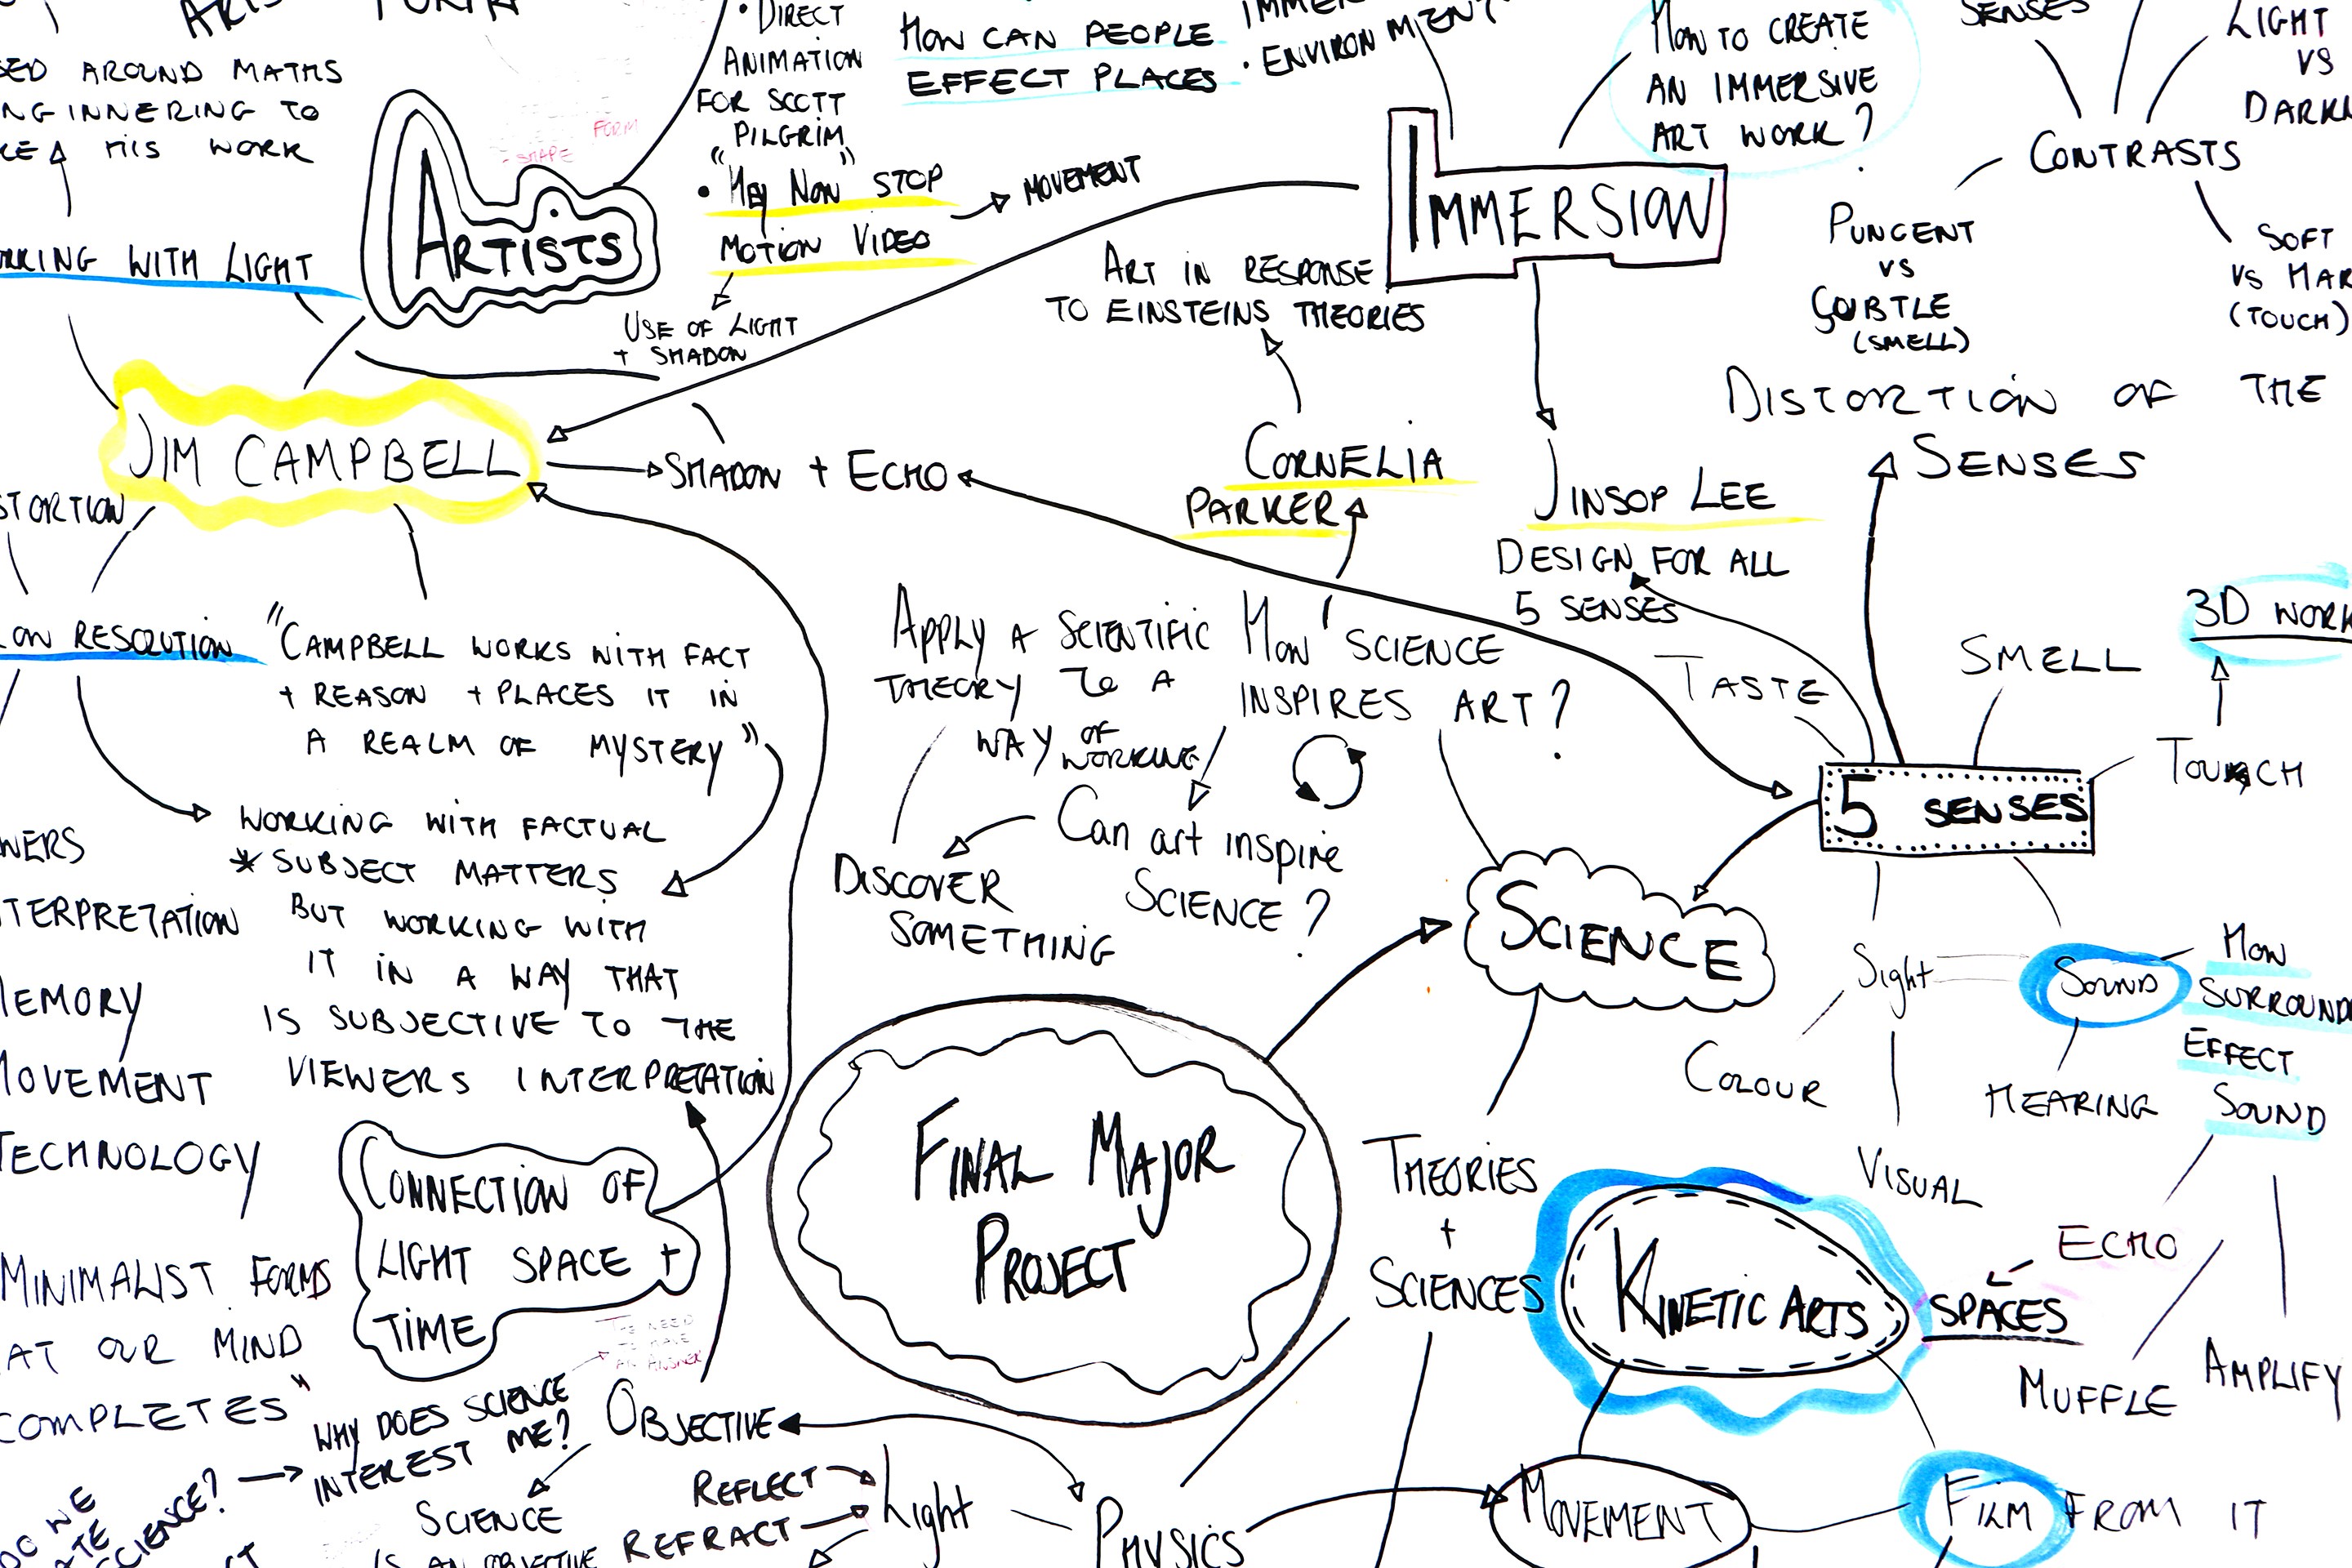 • DIRECT
ANIMATION
FOR SCOTT
PILGRIM
"HEY NOW" STOP
MOTION VIDEO
MOVEMENT
USE OF LIGHT
+ SHADOW
HOW CAN PEOPLE
EFFECT PLACES
• ENVIRONMENT
HOW TO CREATE
AN IMMERSIVE
ART WORK?
SENSES
LIGHT
VS
CONTRASTS
PUNGENT
VS
SUBTLE
(SMELL)
SOFT
VS HAR
(TOUCH)
AROUND MATHS
TO
HIS WORK
WITH LIGHT
FORM
- SHAPE
ARTISTS
IMMERSION
ART IN RESPONSE
TO EINSTEINS THEORIES
DISTORTION OF THE
SENSES
JIM CAMPBELL
SHADOW + ECHO
CORNELIA
PARKER
JINSOP LEE
DESIGN FOR ALL
5 SENSES
RESOLUTION
"CAMPBELL WORKS WITH FACT
+ REASON + PLACES IT IN
A REALM OF MYSTERY"
APPLY A SCIENTIFIC
THEORY TO A
WAY OF
WORKING
HOW SCIENCE
INSPIRES ART?
TASTE
SMELL
3D WORK
TOUCH
5 SENSES
WORKING WITH FACTUAL
* SUBJECT MATTERS
BUT WORKING WITH
IT IN A WAY THAT
IS SUBJECTIVE TO THE
VIEWERS INTERPRETATION
Can art inspire
SCIENCE?
DISCOVER
SOMETHING
SCIENCE
Sight
SOUND
HOW
SURROUND
EFFECT
SOUND
COLOUR
HEARING
VISUAL
WERS
TERPRETATION
MEMORY
MOVEMENT
TECHNOLOGY
MINIMALIST FORMS
AT OUR MIND
COMPLETES"
CONNECTION OF
LIGHT SPACE +
TIME
FINAL MAJOR
PROJECT
THEORIES
+
SCIENCES
KINETIC ARTS
ECHO
SPACES
MUFFLE
AMPLIFY
THE NEED
TO HAVE
AN ANSWER
WHY DOES SCIENCE
INTEREST ME?
OBJECTIVE
SCIENCE
IS AN OBJECTIVE
REFLECT
REFRACT
Light
PHYSICS
MOVEMENT
FILM FROM IT
WE
SCIENCE?